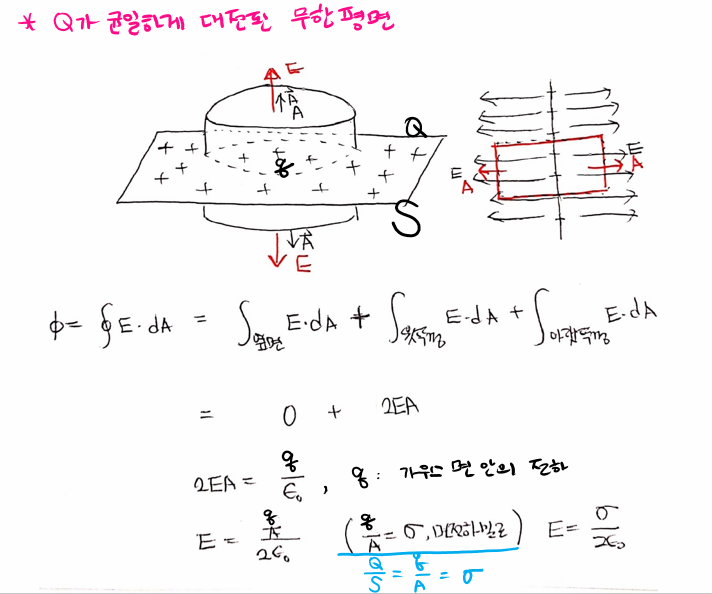 * Q가 균일하게 대전된 무한평면
E
A⃗
A
Q
q
S
A⃗
E
E A
E A
ϕ = ∮E·dA = ∫옆면 E·dA + ∫윗뚜껑 E·dA + ∫아랫뚜껑 E·dA
= 0 + 2EA
2EA = q/ε₀ , q : 가우스 면 안의 전하
E = (q/A)/2ε₀ (q/A = σ, 면전하밀도) E = σ/2ε₀
Q/S = q/A = σ